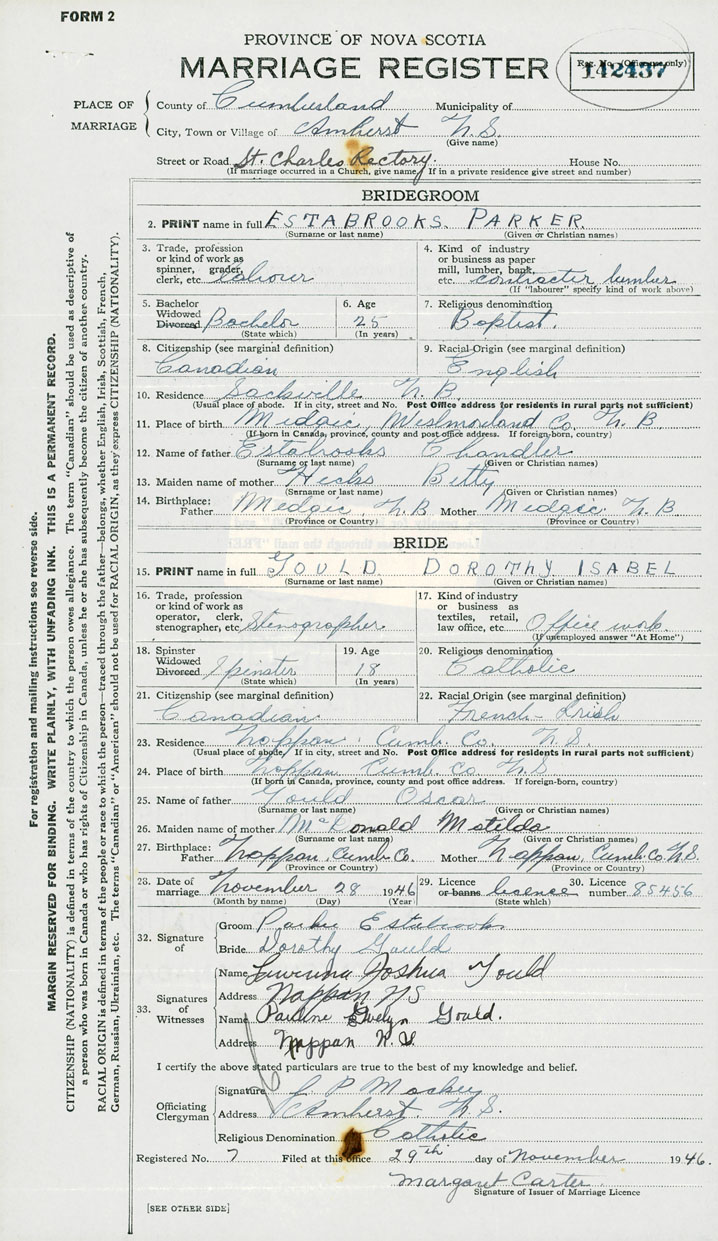 FORM 2
PROVINCE OF NOVA SCOTIA
MARRIAGE REGISTER
Reg. No. (Office use only)
142437
PLACE OF MARRIAGE
County of Cumberland Municipality of
City, Town or Village of Amherst N.S.
(Give name)
Street or Road St. Charles Rectory. House No.
(If marriage occurred in a Church, give name. If in a private residence give street and number)
BRIDEGROOM
2. PRINT name in full ESTABROOKS. PARKER.
(Surname or last name) (Given or Christian names)
3. Trade, profession or kind of work as spinner, grader, clerk, etc. Labourer
4. Kind of industry or business as paper mill, lumber, bank, etc. contracter lumber
(If "labourer" specify kind of work above)
5. Bachelor Widowed Divorced Bachelor
(State which)
6. Age 25
(In years)
7. Religious denomination Baptist.
8. Citizenship (see marginal definition) Canadian
9. Racial Origin (see marginal definition) English
10. Residence Sackville N.B.
(Usual place of abode. If in city, street and No. Post Office address for residents in rural parts not sufficient)
11. Place of birth Midgic, Westmorland Co. N.B.
(If born in Canada, province, county and post office address. If foreign-born, country)
12. Name of father Estabrooks Chandler
(Surname or last name) (Given or Christian names)
13. Maiden name of mother Hicks Betty
(Surname or last name) (Given or Christian names)
14. Birthplace: Father Midgic, N.B Mother Midgic N.B.
(Province or Country) (Province or Country)
BRIDE
15. PRINT name in full GOULD DOROTHY ISABEL
(Surname or last name) (Given or Christian names)
16. Trade, profession or kind of work as operator, clerk, stenographer, etc. Stenographer
17. Kind of industry or business as textiles, retail, law office, etc. Office work.
(If unemployed answer "At Home")
18. Spinster Widowed Divorced Spinster
(State which)
19. Age 18
(In years)
20. Religious denomination Catholic
21. Citizenship (see marginal definition) Canadian
22. Racial Origin (see marginal definition) French-Irish
23. Residence Nappan Cumb. Co. N.S.
(Usual place of abode. If in city, street and No. Post Office address for residents in rural parts not sufficient)
24. Place of birth Nappan Cumb. Co N.S
(If born in Canada, province, county and post office address. If foreign-born, country)
25. Name of father Gould Oscar
(Surname or last name) (Given or Christian names)
26. Maiden name of mother McDonald Matilda
(Surname or last name) (Given or Christian names)
27. Birthplace: Father Nappan, Cumb Co. Mother Nappan, Cumb. Co. N.S.
(Province or Country) (Province or Country)
28. Date of marriage November 28 1946
(Month by name) (Day) (Year)
29. Licence or banns licence
(State which)
30. Licence number 85456
32. Signature of
Groom Parker Estabrooks
Bride Dorothy Gould
33. Signatures of Witnesses
Name Joshua Gould
Address Nappan NS
Name Pauline Evelyn Gould.
Address Nappan N.S.
I certify the above stated particulars are true to the best of my knowledge and belief.
Officiating Clergyman
Signature P Mackey
Address Amherst. N.S.
Religious Denomination Catholic
Registered No. 7 Filed at this office 29th day of November 1946.
Margaret Carter
Signature of Issuer of Marriage Licence
[SEE OTHER SIDE]
For registration and mailing instructions see reverse side.
MARGIN RESERVED FOR BINDING. WRITE PLAINLY, WITH UNFADING INK. THIS IS A PERMANENT RECORD.
CITIZENSHIP (NATIONALITY) is defined in terms of the country to which the person owes allegiance. The term "Canadian" should be used as descriptive of
a person who was born in Canada or who has rights of Citizenship in Canada, unless he or she has subsequently become the citizen of another country.
RACIAL ORIGIN is defined in terms of the people or race to which the person—traced through the father—belongs, whether English, Irish, Scottish, French,
German, Russian, Ukrainian, etc. The terms "Canadian" or "American" should not be used for RACIAL ORIGIN, as they express CITIZENSHIP (NATIONALITY).